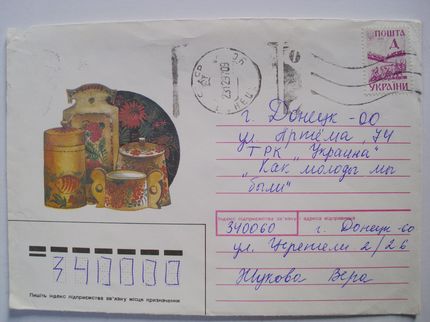 ПОШТА
Д
УКРАЇНИ
г. Донецк-00
ул. Артёма 74
ТРК „Украина"
„Как молоды мы
были"
Індекс підприємства зв'язку адреса відправника
340060 г. Донецк-60
ул. Церетели 2/26
Жукова Вера
340000
Пишіть індекс підприємства зв'язку місця призначення